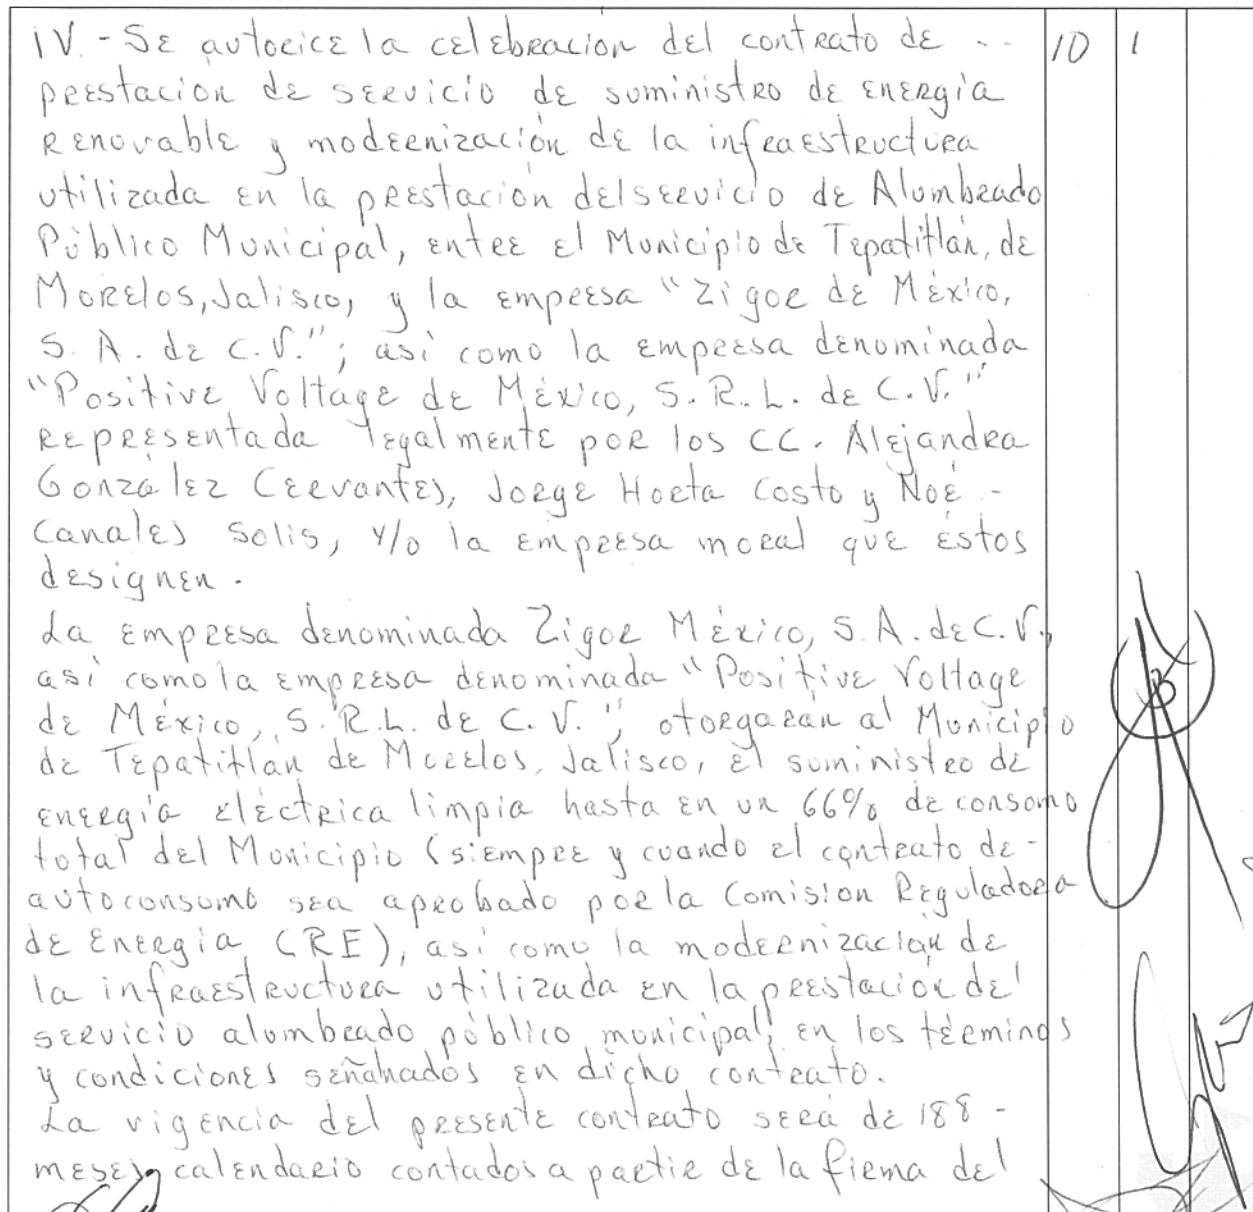 IV.- Se autorice la celebración del contrato de -- 10 1
prestacion de servicio de suministro de energía
renovable y modernización de la infraestructura
utilizada en la prestación del servicio de Alumbrado
Público Municipal, entre el Municipio de Tepatitlán, de
Morelos, Jalisco, y la empresa "Zigor de México,
S. A. de C.V."; así como la empresa denominada
"Positive Voltage de México, S. R. L. de C.V."
representada legalmente por los CC. Alejandra
González Cervantes, Jorge Horta Costo y Noé -
Canales Solis, y/o la empresa moral que éstos
designen.
La empresa denominada Zigor México, S. A. de C.V.,
así como la empresa denominada "Positive Voltage
de México, S. R.L. de C. V.", otorgarán al Municipio
de Tepatitlán de Morelos, Jalisco, el suministro de
energía eléctrica limpia hasta en un 66% de consumo
total del Municipio (siempre y cuando el contrato de -
autoconsumo sea aprobado por la Comisión Reguladora
de Energía (RE), así como la modernización de
la infraestructura utilizada en la prestación del
servicio alumbrado público municipal, en los términos
y condiciones señalados en dicho contrato.
La vigencia del presente contrato será de 188 -
meses calendario contados a partir de la firma del